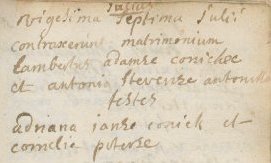 Julius
vigesima septima Julii
contraxerunt matrimonium
lambertus adamse conickse
et antonia stevense
testes
adriana janse conick et
cornelie peterse